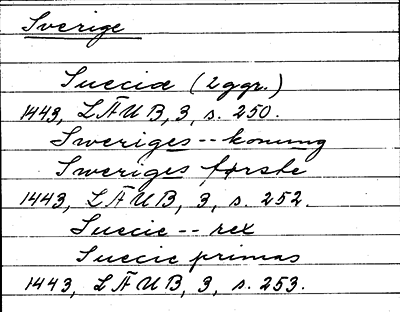 Sverige
Succiæ (2 ggr.)
1443, LÄUB, 3, s. 250.
Sweriges -- konung
Sweriges første
1443, LÄUB, 3, s. 252.
Succie -- rex
Succie primas
1443, LÄUB, 3, s. 253.